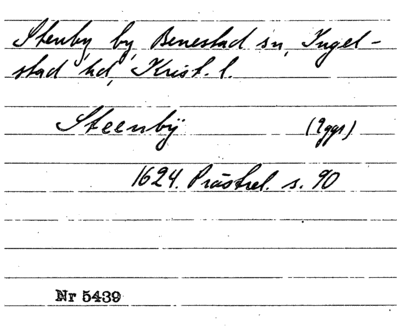 Stenby by, Benestad sn, Ingel-
stad hd, Krist. l.
Steenbÿ (2ggr)
1624. Prästrel. s. 90
Nr 5439